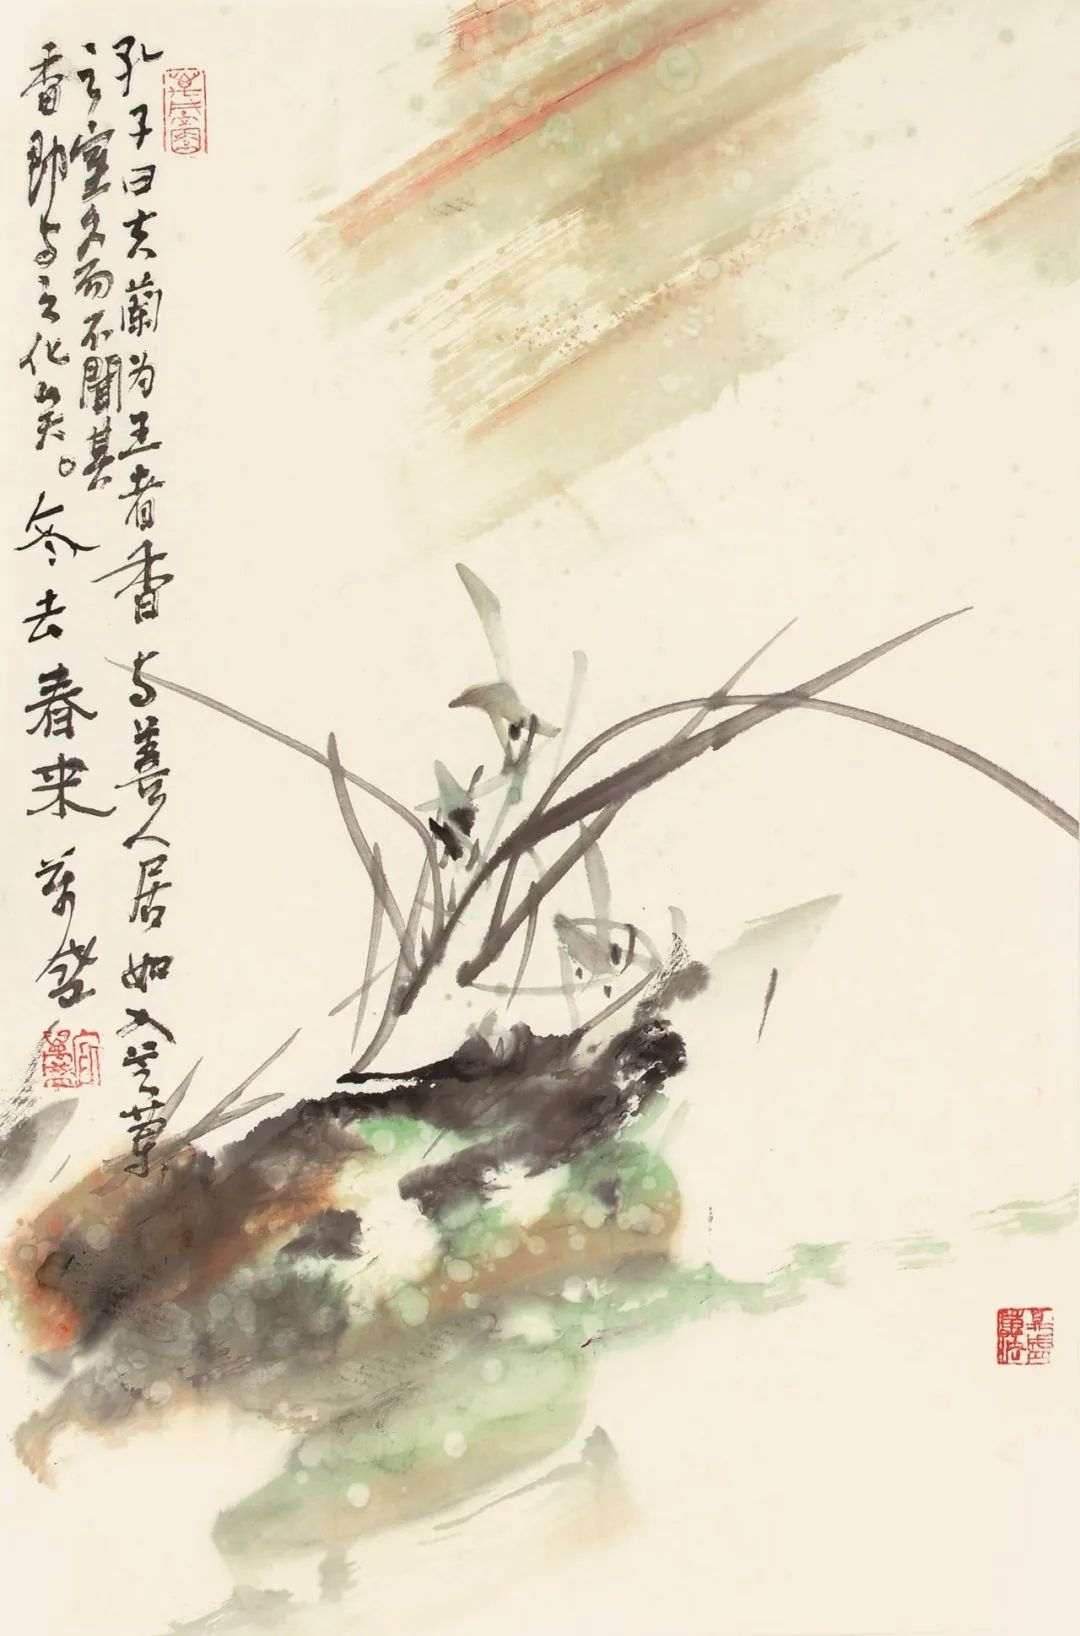 孔子曰夫蘭为王者香与善人居如入芝蘭
之室久而不聞其
香即与之化矣。冬去春来 萬盛